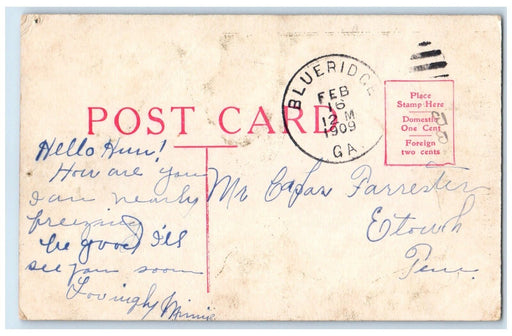 BLUERIDGE
FEB
16
12 M
1909
GA.
POST CARD
Place
Stamp Here
Domestic
One Cent
Foreign
two cents
Hello Hun!
How are you
I am nearly
freezing
be good I'll
see you soon
Lovingly Minnie
Mr Forrester
Etowah
Tenn.